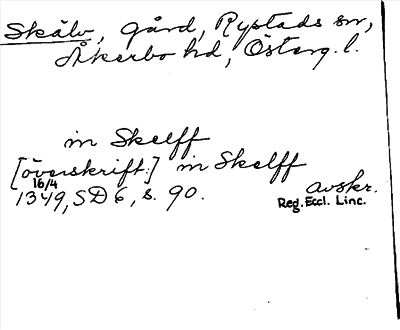 Skälv, Gård, Rystads sn,
Åkerbo hd, Österg. l.
in Skelff
[överskrift:] in Skelff
16/4
1349, SD 6, s. 90.
avskr.
Reg. Eccl. Linc.